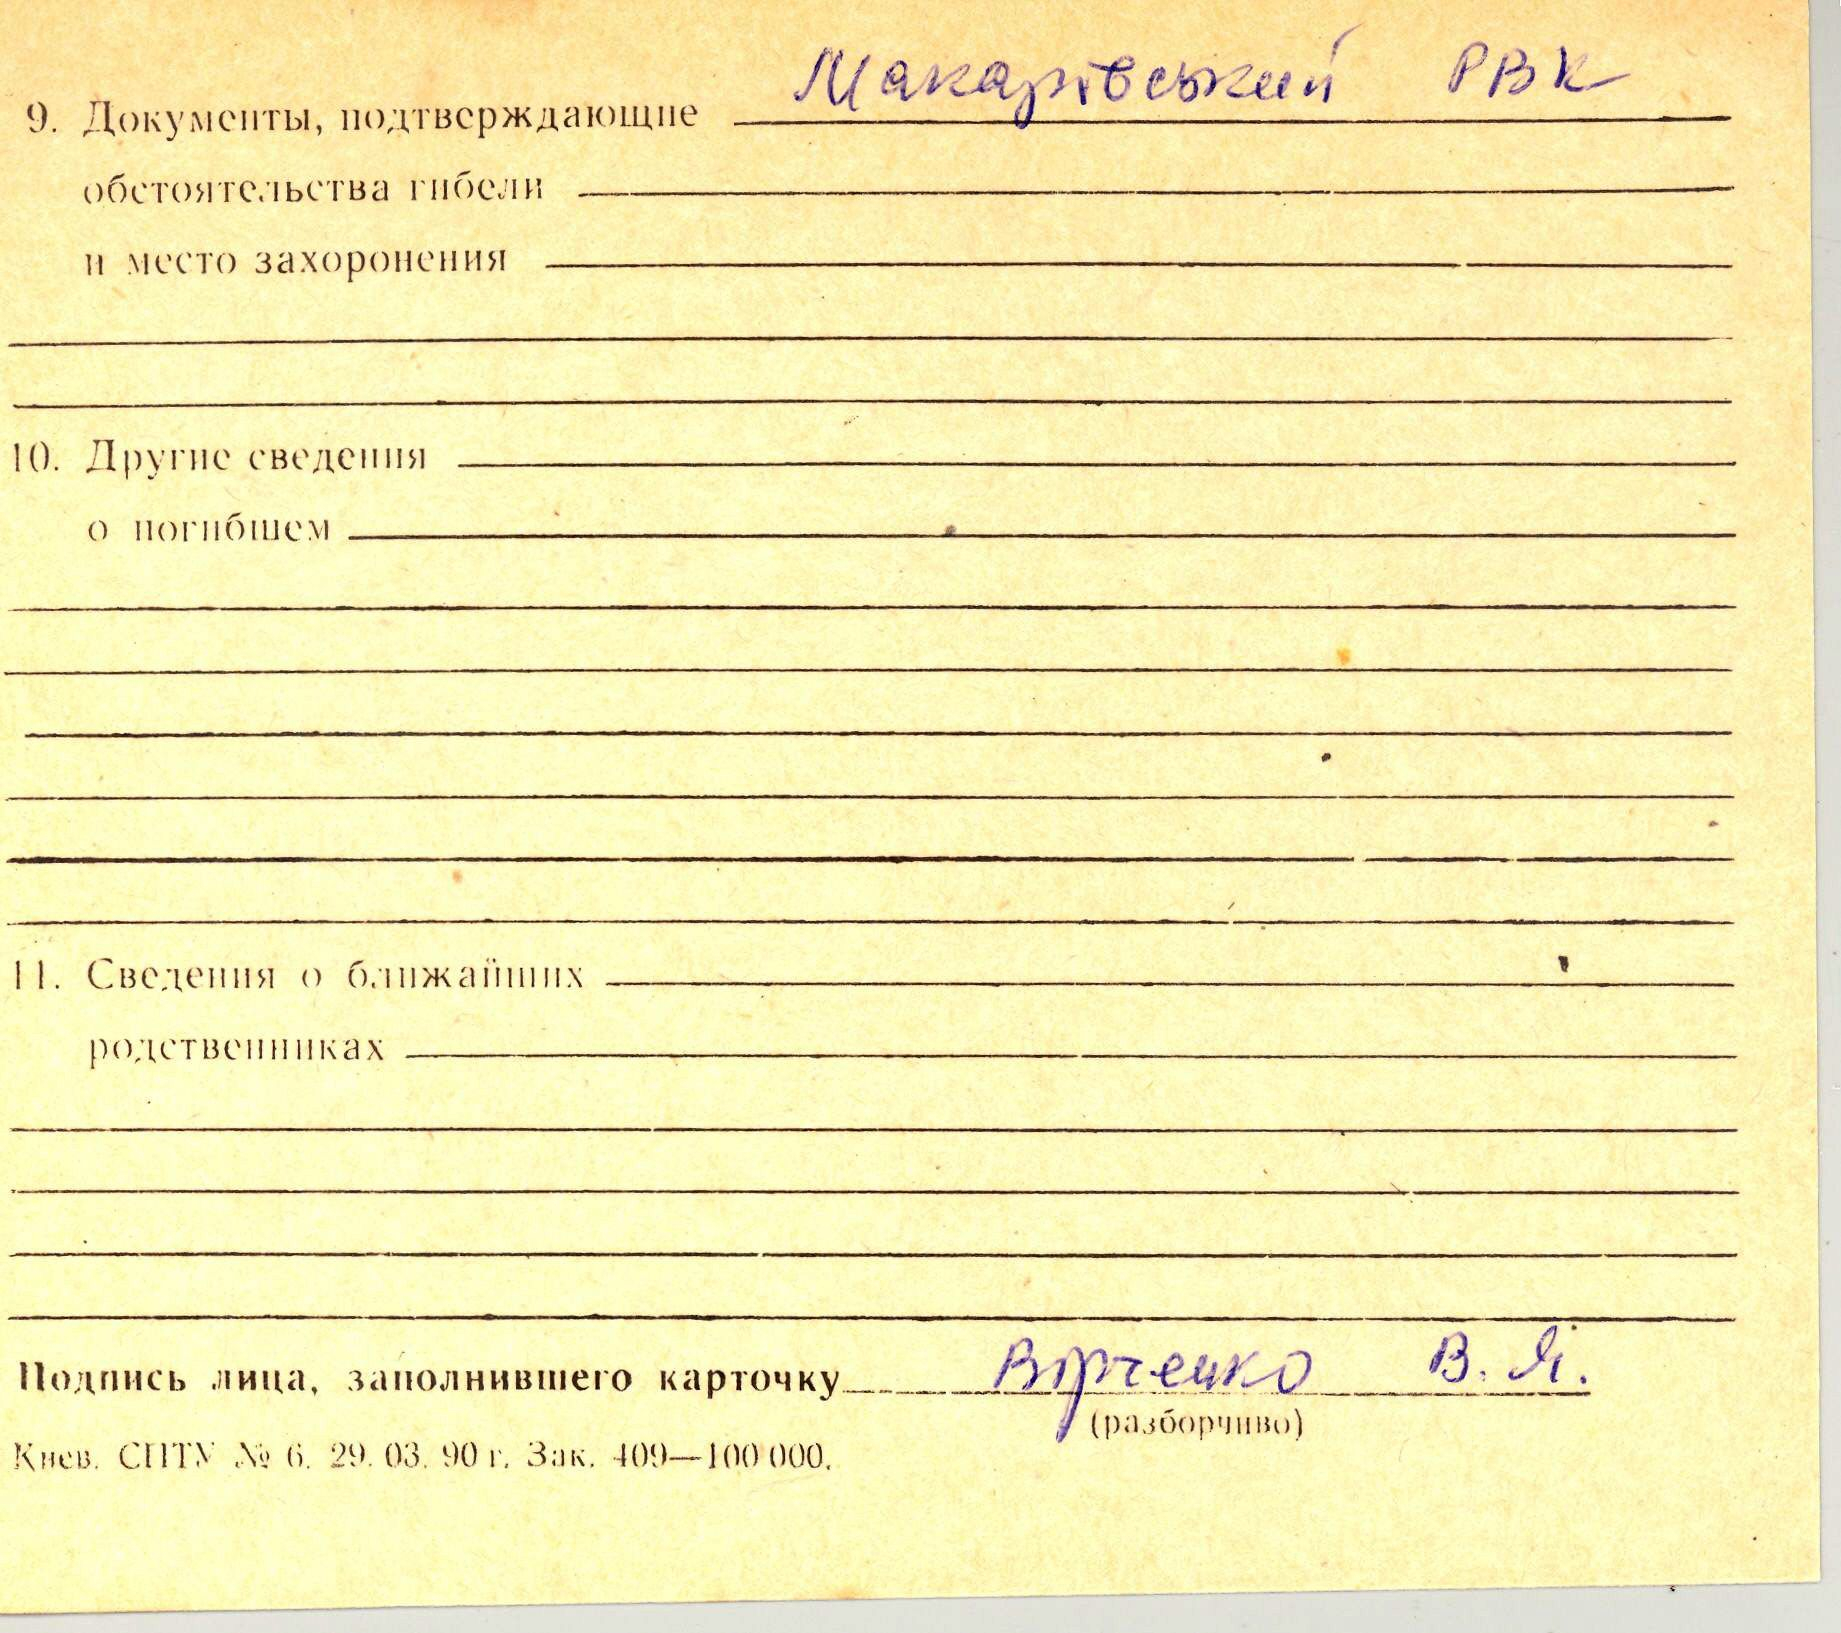 Макарівський РВК
9. Документы, подтверждающие
обстоятельства гибели
и место захоронения
10. Другие сведения
о погибшем
11. Сведения о ближайших
родственниках
Подпись лица, заполнившего карточку Вірченко В. Я.
(разборчиво)
Киев. СПТУ № 6. 29. 03. 90 г. Зак. 409—100 000.